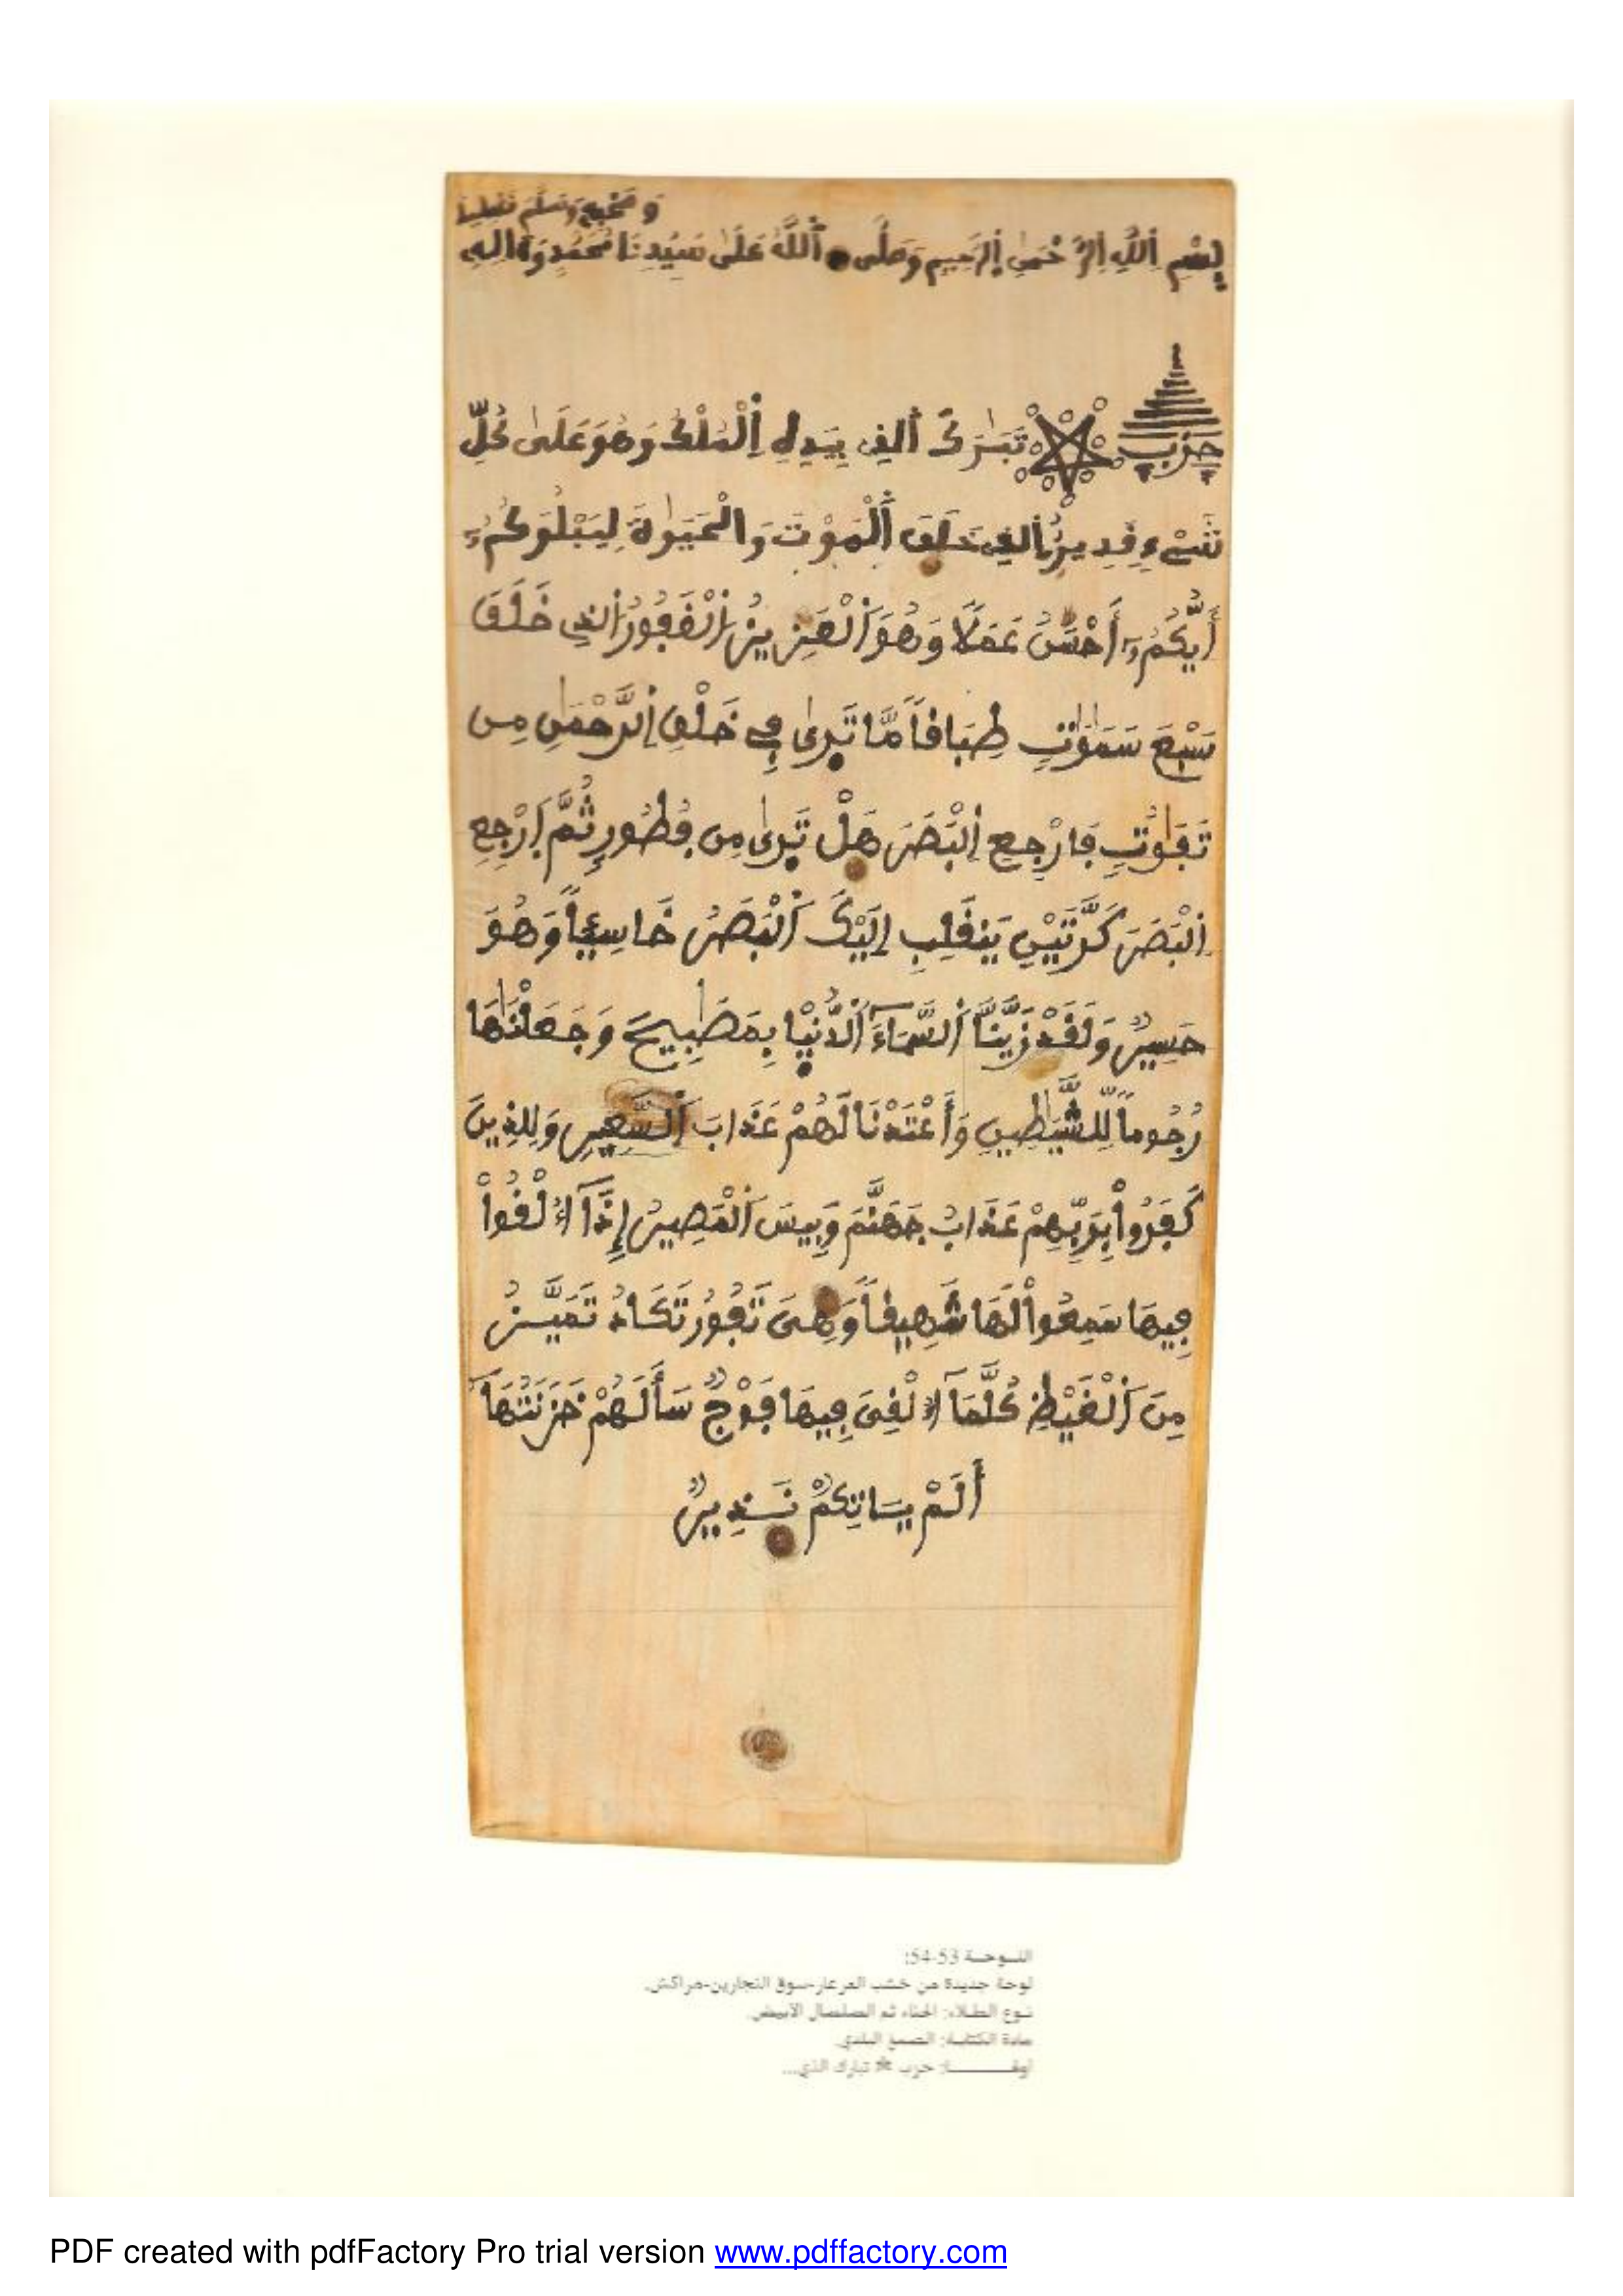 وصحبه وسلم تسليما
بِسْمِ اِللَّهِ اِلرَّحْمَٰنِ اِلرَّحِيمِ وَصَلَّى اَللَّهُ عَلَىٰ سَيِّدِنَا مُحَمَّدٍ وَءَالِهِ
حِزْب تَبَٰرَكَ اَلذِے بِيَدِهِ اِلْمُلْكُ وَهُوَ عَلَىٰ كُلِّ
شَےْءٖ قَدِيرٌ اَلذِے خَلَقَ اَلْمَوْتَ وَالْحَيَوٰةَ لِيَبْلُوَكُمُۥٓ
أَيُّكُمُۥٓ أَحْسَنُ عَمَلًا وَهُوَ اَلْعَزِيزُ اُلْغَفُورُ اُلذِے خَلَقَ
سَبْعَ سَمَٰوَٰتٖ طِبَاقاً مَّا تَرٜىٰ فِے خَلْقِ اِلرَّحْمَٰنِ مِن
تَفَٰوُتٖ فَارْجِعِ اِلْبَصَرَ هَلْ تَرٜىٰ مِن فُطُورٖ ثُمَّ اَرْجِعِ
اِلْبَصَرَ كَرَّتَيْنِ يَنقَلِبِ اِلَيْكَ اَلْبَصَرُ خَاسِئاً وَهُوَ
حَسِيرٌ وَلَقَدْ زَيَّنَّا اَلسَّمَآءَ اَلدُّنْيٜا بِمَصَٰبِيحَ وَجَعَلْنَٰهَا
رُجُوماً لِّلشَّيَٰطِينِ وَأَعْتَدْنَا لَهُمْ عَذَابَ اَلسَّعِيرِ وَلِلذِينَ
كَفَرُواْ بِرَبِّهِمْ عَذَابُ جَهَنَّمَ وَبِيسَ اَلْمَصِيرُ إِذَآ أُلْقُواْ
فِيهَا سَمِعُواْ لَهَا شَهِيقاً وَهِيَ تَفُورُ تَكَادُ تَمَيَّزُ
مِنَ اَلْغَيْظِ كُلَّمَآ أُلْقِيَ فِيهَا فَوْجٌ سَأَلَهُمْ خَزَنَتُهَآ
أَلَمْ يَاتِكُمْ نَذِيرٌ
اللـوحـة 53-54:
لوحة جديدة من خشب العرعار-سوق النجارين-مراكش.
نـوع الطـلاء: الحناء ثم الصلصال الأبيض.
مادة الكتابـة: الصمغ البلدي.
حزب * تبارك الذي...
PDF created with pdfFactory Pro trial version www.pdffactory.com